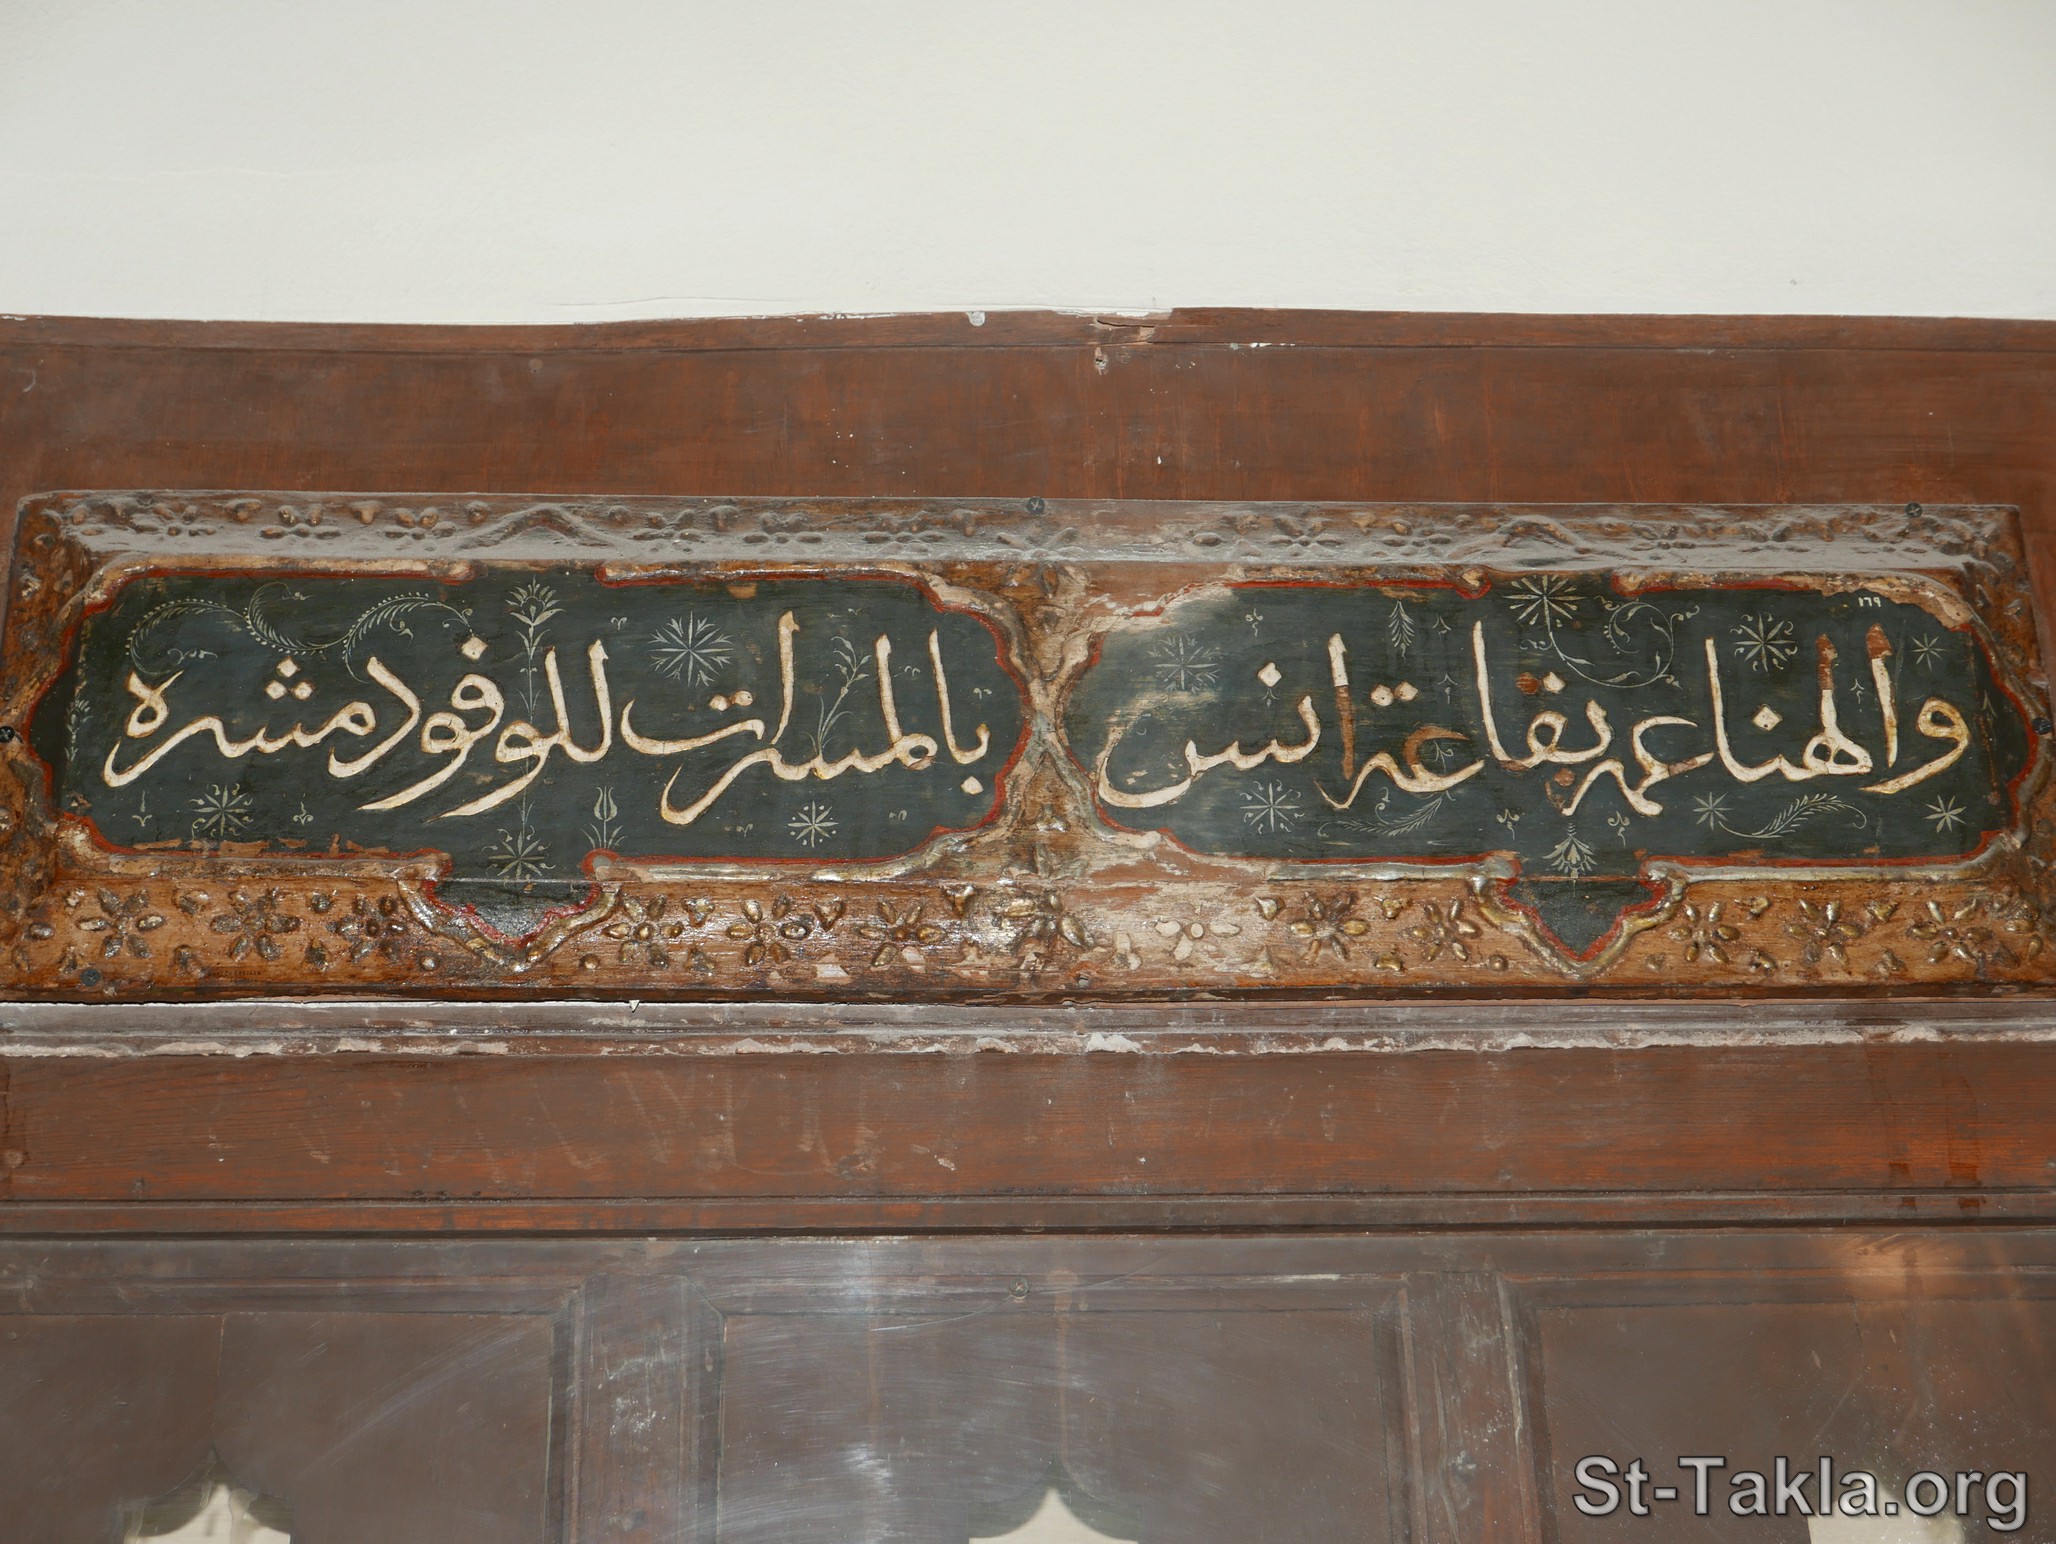 ١٦٩
والهنا عمه بقاعة انس
بالمسرات للوفود مشره
St-Takla.org